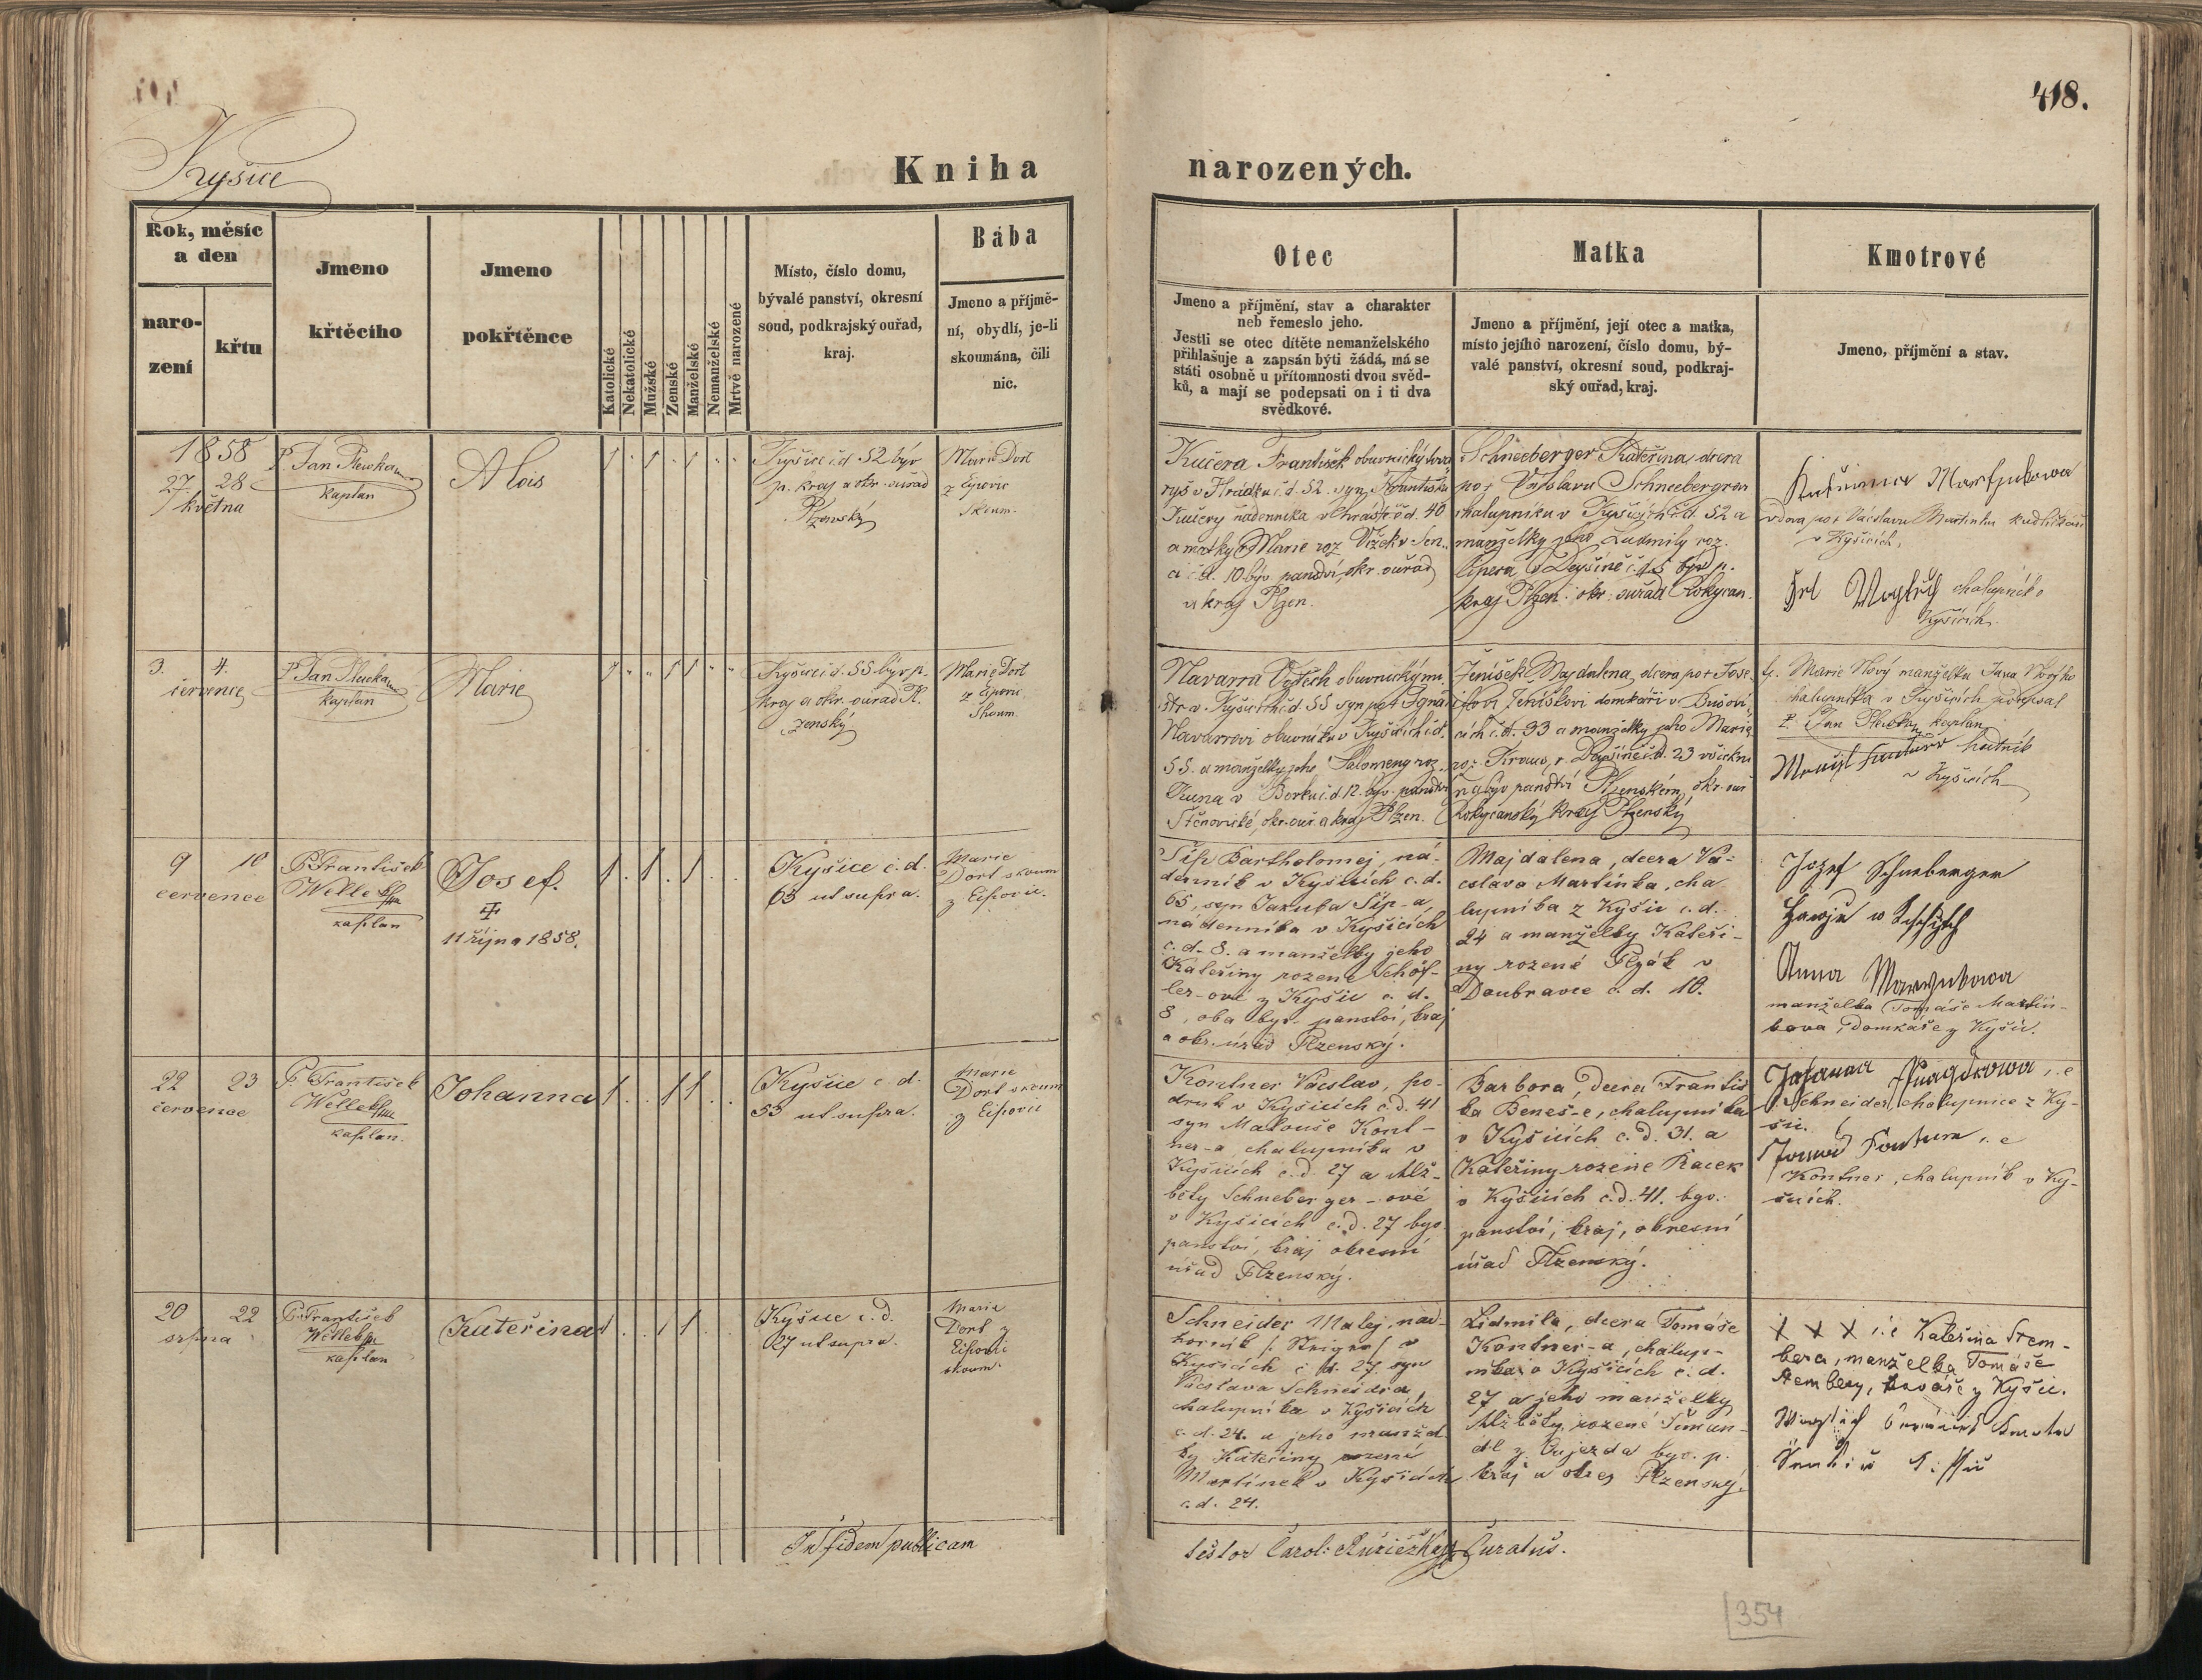 418.
Kyšice
Kniha narozených.
Rok, měsíc
a den
naro-
zení
křtu
Jmeno
křtěcího
Jmeno
pokřtěnce
Katolické
Nekatolické
Mužské
Ženské
Manželské
Nemanželské
Mrtvě narozené
Místo, číslo domu,
bývalé panství, okresní
soud, podkrajský ouřad,
kraj.
Bába
Jmeno a příjmě-
ní, obydlí, je-li
skoumána, čili
nic.
Otec
Jmeno a příjmění, stav a charakter
neb řemeslo jeho.
Jestli se otec dítěte nemanželského
přihlašuje a zapsán býti žádá, má se
státi osobně u přítomnosti dvou svěd-
ků, a mají se podepsati on i ti dva
svědkové.
Matka
Jmeno a příjmění, její otec a matka,
místo jejího narození, číslo domu, bý-
valé panství, okresní soud, podkraj-
ský ouřad, kraj.
Kmotrové
Jmeno, příjmění a stav.
1858
27 28
května
P. Jan
kaplan
Alois
Kyšice č.d. 52 býv
p. kraj a okr. ouřad
Plzenský
Marie Dort
z Ejpovic
skoum.
Kučera František obuvnický tova
ryš v Hrádku č.d. 52. syn Františka
Kučery nádenníka v Chrástě č.d. 40
a matky Marie roz.
č.d. 10 býv. panství, okr. ouřad
a kraj Plzen.
Schneeberger Kateřina, dcera
po+ Václavu Schneebergrov
chalupníku v Kyšicích č.d. 52 a
manželky jeho Ludmily roz.
Lipera z Dejšině č.d. 5 býv p.
kraj Plzen. okr. ouřad Rokycan.
vdova po+ Václavu Martinku
v Kyšicích.
chalupník v
Kyšicích.
3. 4.
července
P. Jan
kaplan
Marie
Kyšice č.d. 55 býv. p.
kraj a okr. ouřad Pl-
zenský
Marie Dort
z Ejpovic
Skoum.
Navarra Vojtěch obuvnický mi-
str v Kyšicích č.d. 55 syn po+ Igná
Navarrovi obuvníku v Kyšicích č.d.
55. a manželky jeho Salomeny roz.
Kuna v Borku č.d. 12. býv. panství
Štěnovické, okr. ouř a kraj Plzen.
Jeníšek Magdalena, dcera po+ Jose-
ifovi Jeníškovi domkáři v Bušovi-
cích č.d. 93 a manželky jeho Marie
roz. Kraus, z Dejšině č.d. 23 všickni
na býv panství Plzenském, okr. ouř
Rokycanský kraj Plzenský
Marie Nový manželka Jana Nového
chalupníka v Kyšicích podepsal
P. Jan kaplan
hutník
v Kyšicích
9 10
července
P. František
kaplan
Josef.
11 října 1858.
Kyšice č.d.
65 ut supra.
Marie
Dort skoum
z Ejpovic.
Síp Bartholomej, ná-
denník v Kyšicích č.d.
65, syn Jakuba Síp-a,
nádenníka v Kyšicích
č.d. 8. a manželky jeho
Kateřiny rozené Schöf-
ler-ové z Kyšic č.d.
8, oba býv. panství, kraj
a okr. úřad Plzenský.
Majdalena, dcera Vá-
cslava Martínka, cha-
lupníka z Kyšic č.d.
24 a manželky Kateři-
ny rozené Plzák v
Doubravce č.d. 10.
Jozef Schneberger
Anna
manželka Tomáše Martín-
kova, domkáře z Kyšic.
22 23
července
P. František
kaplan.
Johanna
Kyšice č.d.
53 ut supra.
Marie
Dort skoum
z Ejpovic
Kontner Vácslav, po-
druh v Kyšicích č.d. 41
syn Matouše Kont-
ner-a, chalupníka v
Kyšicích č.d. 27 a Alž-
běty Schneberger-ové
v Kyšicích č.d. 27 býv.
panství, kraj okresní
úřad Plzenský.
Barbora, dcera Františ
ka Beneš-e, chalupníka
v Kyšicích č.d. 31. a
Kateřiny rozené Racek
v Kyšicích č.d. 41. býv.
panství, kraj, okresní
úřad Plzenský.
Johanna i.e
Schneider, chalupnice z Ky-
šic.
i.e
Kontner, chalupník v Ky-
šicích.
20 22
srpna
P. František
kaplan
Kateřina
Kyšice č.d.
27 ut supra.
Marie
Dort z
Ejpovic
skoum.
Schneider Matej, nad-
horník v
Kyšicích č.d. 27. syn
Vácslava Schneidra,
chalupníka v Kyšicích
č.d. 24. a jeho manžel-
ky Kateřiny rozené
Martínek v Kyšicích
č.d. 24.
Lidmila, dcera Tomáše
Kontner-a, chalup-
níka v Kyšicích č.d.
27 a jeho manželky
Alžběty, rozené
z Oujezda býv. p.
kraj a okres Plzenský.
X X X i.e Kateřina Stem-
bera, manželka Tomáše
Stembery, z Kyšic.
In fidem publicam
testor Carol: Růžiežka Curatus.
354